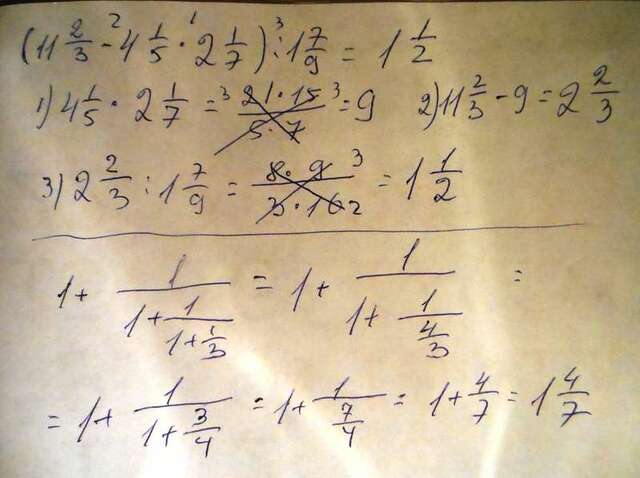 (11 2/3 - 4 1/5 · 2 1/7) : 1 7/9 = 1 1/2
1) 4 1/5 · 2 1/7 = (21 · 15)/(5 · 7) = 9   2) 11 2/3 - 9 = 2 2/3
3) 2 2/3 : 1 7/9 = (8 · 9)/(3 · 16) = 1 1/2
1 + 1/(1 + 1/(1 + 1/3)) = 1 + 1/(1 + 1/(4/3)) =
= 1 + 1/(1 + 3/4) = 1 + 1/(7/4) = 1 + 4/7 = 1 4/7